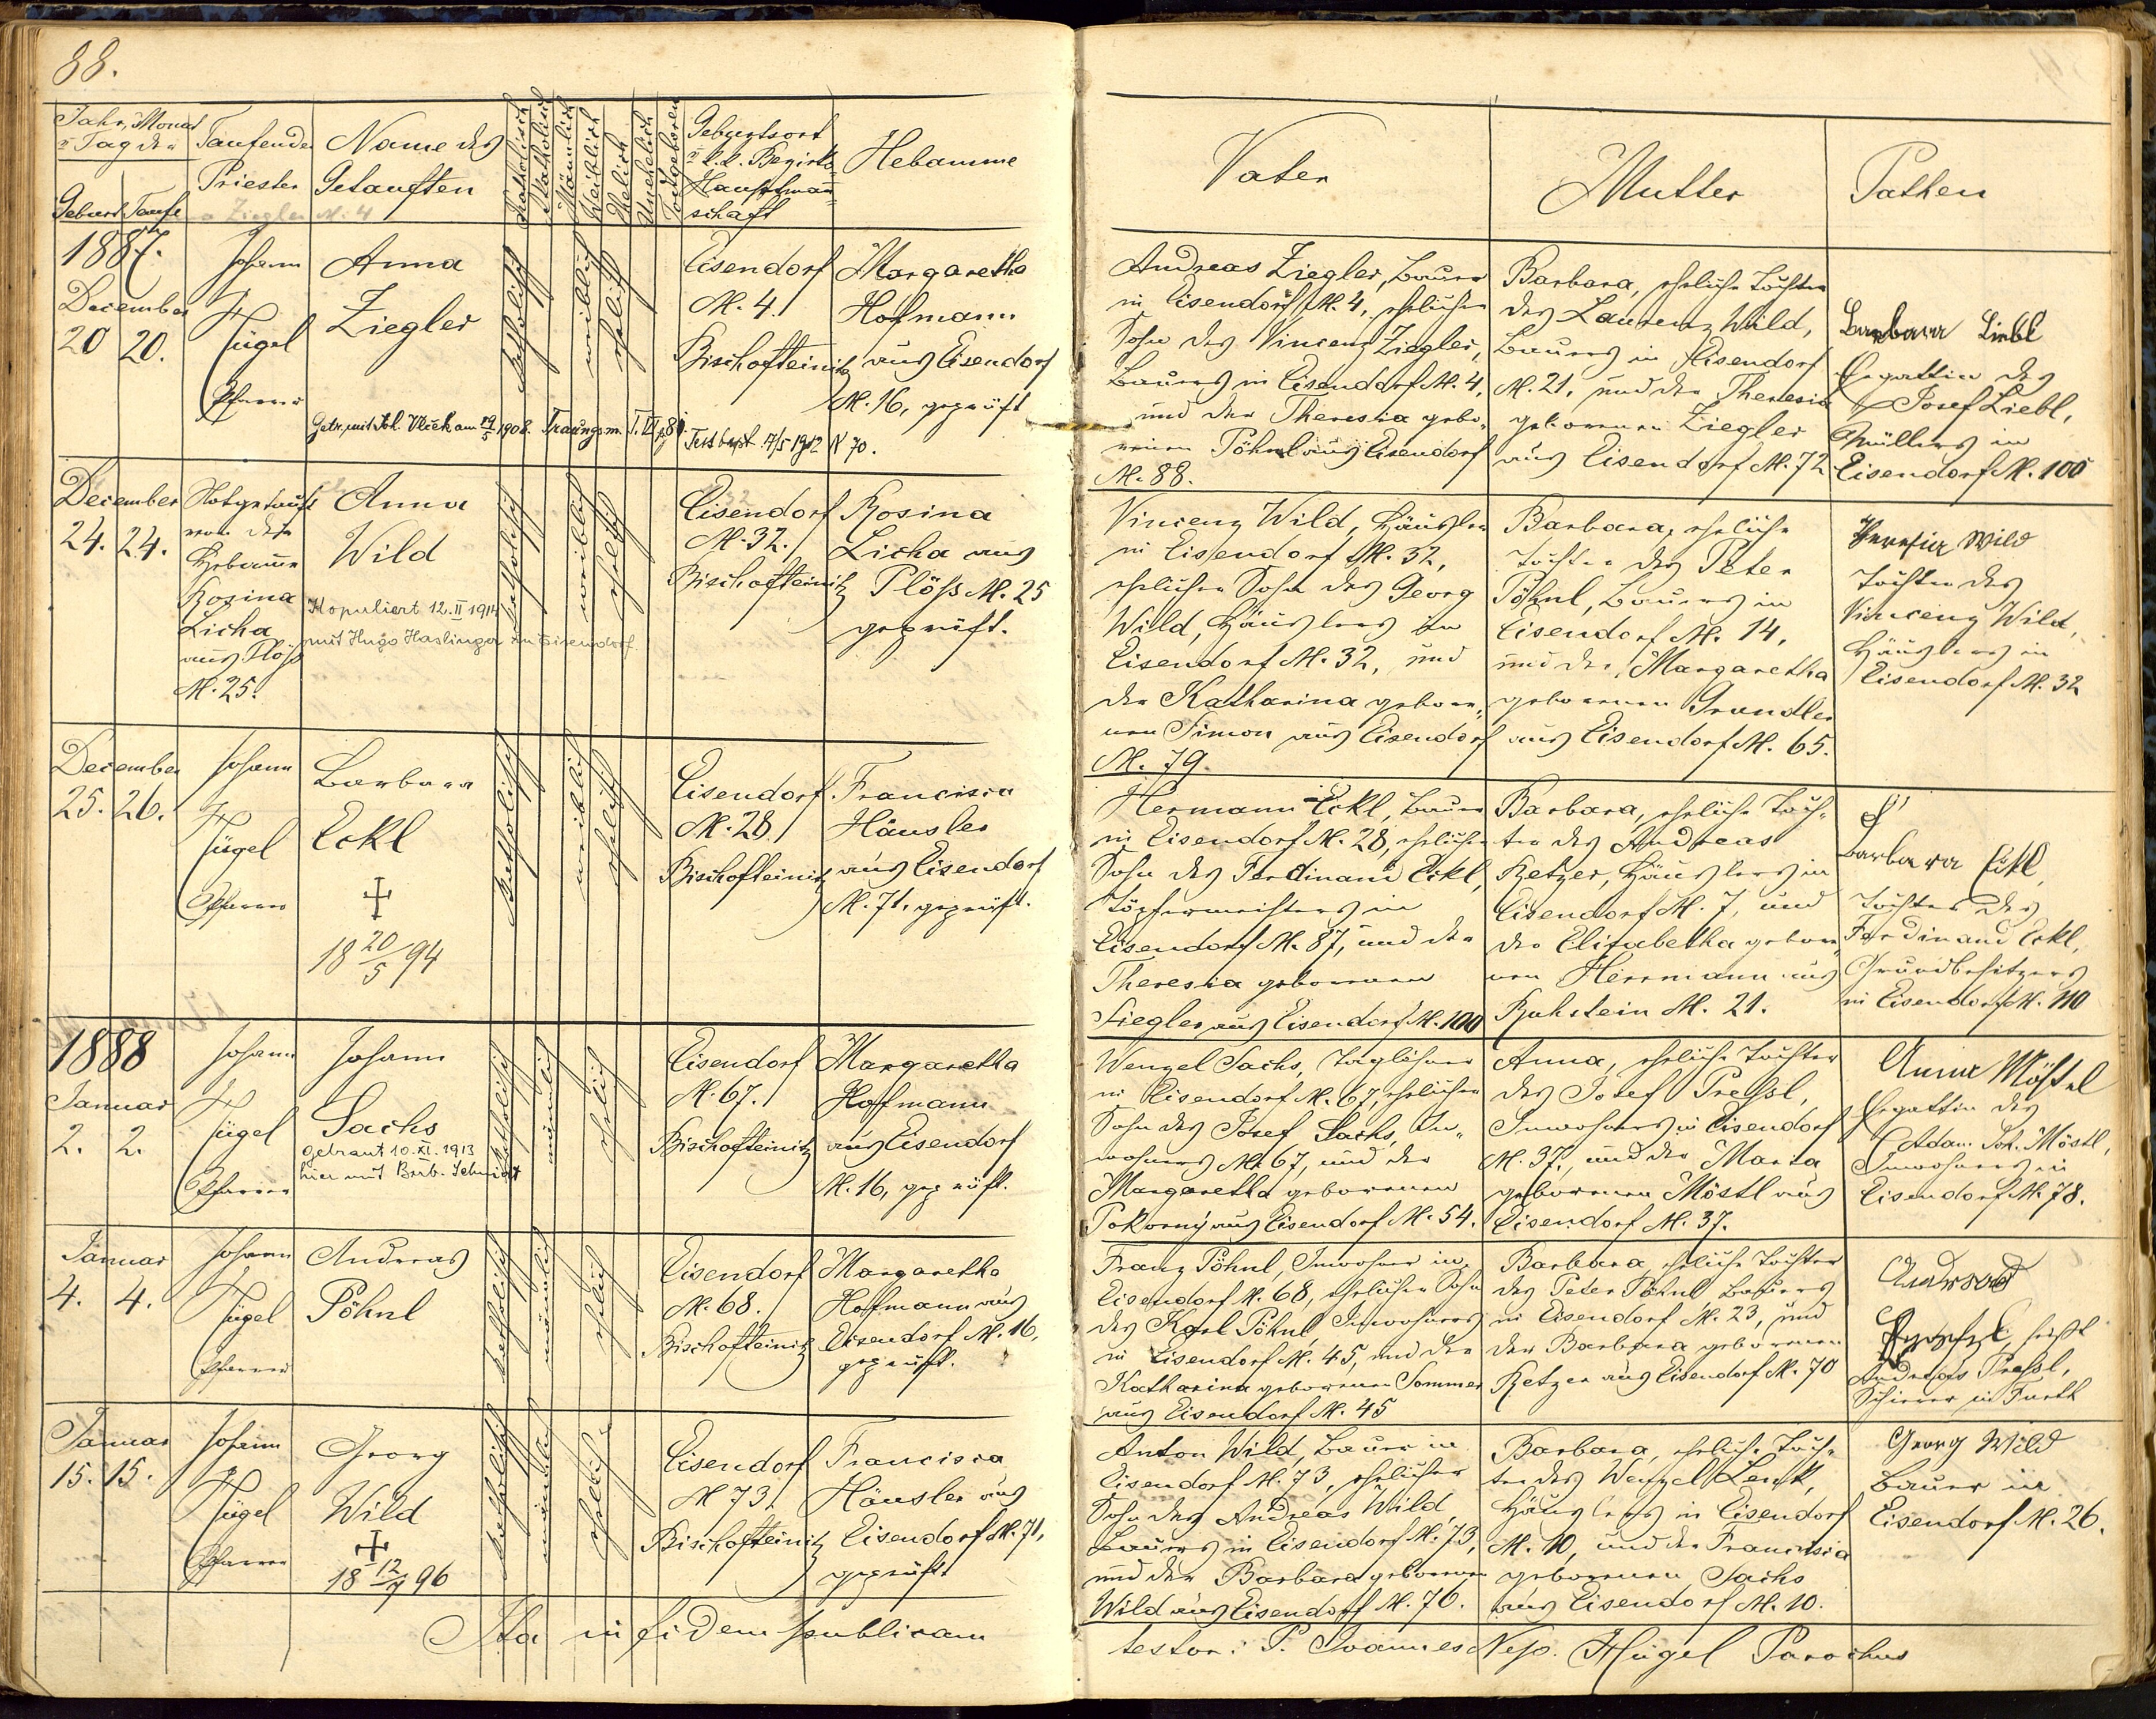 88.
Jahr, Monat
u Tag der
Geburt Taufe
Taufender
Priester
Name des
Getauften
Katholisch
Akatholisch
Männlich
Weiblich
Ehelich
Unehelich
Todtgeboren
Geburtsort
u k.k. Bezirks-
Hauptmann-
schaft
Hebamme
Vater
Mutter
Pathen
a Ziegler N. 4
1887.
December
20 20.
Johann
Hügel
Pfarrer
Anna
Ziegler
katholisch
weiblich
ehelich
Eisendorf
N. 4.
Bischofteinitz
Margaretha
Hofmann
aus Eisendorf
N. 16, geprüft
Getr. mit Joh. Vlček am 19/5 1908. Trauungsm. T. VI p 81.
Testbest. 17/5 1912 N 70.
Andreas Ziegler, Bauer
in Eisendorf N. 4, ehelicher
Sohn des Vincenz Ziegler,
Bauers in Eisendorf N. 4,
und der Theresia gebo-
renen Pöhnl aus Eisendorf
N. 88.
Barbara, eheliche Tochter
des Laurenz Wild,
Bauers in Eisendorf
N. 21, und der Theresia
geborenen Ziegler
aus Eisendorf N. 72
Barbara Liebl
Ehegattin des
Josef Liebl,
Müllers in
Eisendorf N. 100
December
24. 24.
Notgetauft
von der
Hebamme
Rosina
Licha
aus Plöß
N. 25.
Anna
Wild
Kopuliert 12.II 1914
mit Hugo Haslinger in Eisendorf.
katholisch
weiblich
ehelich
Eisendorf
N. 32.
Bischofteinitz
Rosina
Licha aus
Plöß N. 25
geprüft.
Vincenz Wild, Häusler
in Eisendorf N. 32,
ehelicher Sohn des Georg
Wild, Häuslers in
Eisendorf N. 32, und
der Katharina gebore-
nen Simon aus Eisendorf
N. 79.
Barbara, eheliche
Tochter des Peter
Pöhnl, Bauers in
Eisendorf N. 14,
und der Margaretha
geborenen Grundler
aus Eisendorf N. 65.
Theresia Wild
Tochter des
Vincenz Wild,
Häuslers in
Eisendorf N. 32
December
25. 26.
Johann
Hügel
Pfarrer
Barbara
Eckl
†
18 20/5 94
katholisch
weiblich
ehelich
Eisendorf
N. 28.
Bischofteinitz
Francisca
Häusler
aus Eisendorf
N. 71, geprüft.
Hermann Eckl, Bauer
in Eisendorf N. 28, ehelicher
Sohn des Ferdinand Eckl,
Töpfermeisters in
Eisendorf N. 87, und der
Theresia geborenen
Ziegler aus Eisendorf N. 100
Barbara, eheliche Toch-
ter des Andreas
Retzer, Häuslers in
Eisendorf N. 7, und
der Elisabetha gebore-
nen Herrmann aus
Ruhstein N. 21.
Barbara Eckl,
Tochter des
Ferdinand Eckl,
Grundbesitzers
in Eisendorf N. 110
1888
Januar
2. 2.
Johann
Hügel
Pfarrer
Johann
Sachs
getraut 10.XI.1913
hier mit Barb. Schmidt
katholisch
männlich
ehelich
Eisendorf
N. 67.
Bischofteinitz
Margaretha
Hofmann
aus Eisendorf
N. 16, geprüft.
Wenzel Sachs, Taglöhner
in Eisendorf N. 67, ehelicher
Sohn des Josef Sachs, In-
wohners N. 67, und der
Margaretha geborenen
Pokorný aus Eisendorf N. 54.
Anna, eheliche Tochter
des Josef Preßl,
Inwohners in Eisendorf
N. 37, und der Maria
geborenen Möstl aus
Eisendorf N. 37.
Anna Möstel
Ehegattin des
Adam Joh. Möstl,
Inwohners in
Eisendorf N. 78.
Januar
4. 4.
Johann
Hügel
Pfarrer
Andreas
Pöhnl
katholisch
männlich
ehelich
Eisendorf
N. 68.
Bischofteinitz
Margaretha
Hofmann aus
Eisendorf N. 16,
geprüft.
Franz Pöhnl, Inwohner in
Eisendorf N. 68, ehelicher Sohn
des Karl Pöhnl, Inwohners
in Eisendorf N. 45, und der
Katharina geborenen Sommer
aus Eisendorf N. 45
Barbara, eheliche Tochter
des Peter Pöhnl Bauers
in Eisendorf N. 23, und
der Barbara geborenen
Retzer aus Eisendorf N. 70
Andreas
heißt
Andreas Preßl,
in Furth
Januar
15. 15.
Johann
Hügel
Pfarrer
Georg
Wild
†
18 12/7 96
katholisch
männlich
ehelich
Eisendorf
N 73.
Bischofteinitz
Francisca
Häusler aus
Eisendorf N. 71,
geprüft.
Anton Wild, Bauer in
Eisendorf N. 73, ehelicher
Sohn des Andreas Wild,
Bauers in Eisendorf N. 73,
und der Barbara geborenen
Wild aus Eisendorf N. 76.
Barbara, eheliche Toch-
ter des Wenzel Lenk,
Häuslers in Eisendorf
N. 10, und der Francisca
geborenen Sachs
aus Eisendorf N. 10.
Georg Wild
Bauer in
Eisendorf N. 26.
Ita in fidem publicam
testor: P. Joannes Nep. Hügel Parochus